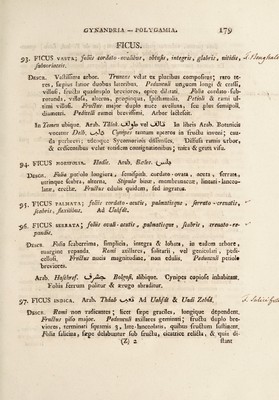 GYNANDRIA — POLYGAMIA. 179
FICUS.
93. FICUS VASTA; foliis cordato-ovalibus, obtusis, integris, glabris, nitidis,
suboriatis.
DESCR. Vastissima arbor. Truncus velut ex pluribus compositus; raro te-
res, sæpius latior duobus lateribus. Pedunculi unguem longi & crassi,
villosi, fructu quadruplo breviores, apice dilatati. Folia cordato-sub-
rotunda, villosa, alterna, propinqua, spithamalia. Petioli & rami ul-
timi villosi. Fructus major duplo nuce avellana, seu plus semipoll.
diametri. Pedicelli rami brevissimi. Arbor lactescit.
In Taaes ubique. Arab. Tâlak طولق vel تالق In libris Arab. Botanicis
vocatur Delb. دلب Cynipes tantum apteros in fructu inveni; cau-
da pulices; utrosque Sycomoraniis dissimiles. Diffusis ramis arbor,
& crescentibus velut totidem contignationibus; tuta & grata visu.
94. FICUS Hodie. Arab.
DESCR. Folia petiolo longiora, semiped. cordato-ovata, acuta, serrata,
utrinque scabra, alterna. Stipulæ binæ, membranaceæ, lineari-lanceo-
latæ, erectæ. Fructus edulis quidem, sed ingratus.
95. FICUS PALMATA; foliis cordato-acutis, palmatisque, serrato-crenatis,
scabris, Ad
96. FICUS SERRATA; foliis ovali-acutis, palmatisque, scabris, crenato-re-
pandis.
DESCR. Folia scaberrima, simplicia, integra & lobata, in eadem arbore,
margine repando. Rami axillares, solitarii, vel geniculati, poly-
cephali. Fructus nucis magnitudine, non edulis. Pedunculi petiolo
breviores.
Arab. Bolgosi, alibique. Cynipes copiose inhabitant.
Foliis ferrum politur & ærugo abraditur.
97. FICUS INDICA. Arab. Thâab تحب Ad & Uadi Zebîd.
DESCR. Rami non radicantes; licet sæpe graciles, longique dependent.
Fructus piso major. Pedunculi axillares gemini; fructu duplo bre-
viores, terminati squamis 3, late-lanceolatis, quibus fructum sustinent.
Folia salicina, sæpe delabuntur sub fructu, cicatrice relicta, & quia di-
(Z) 2 stant